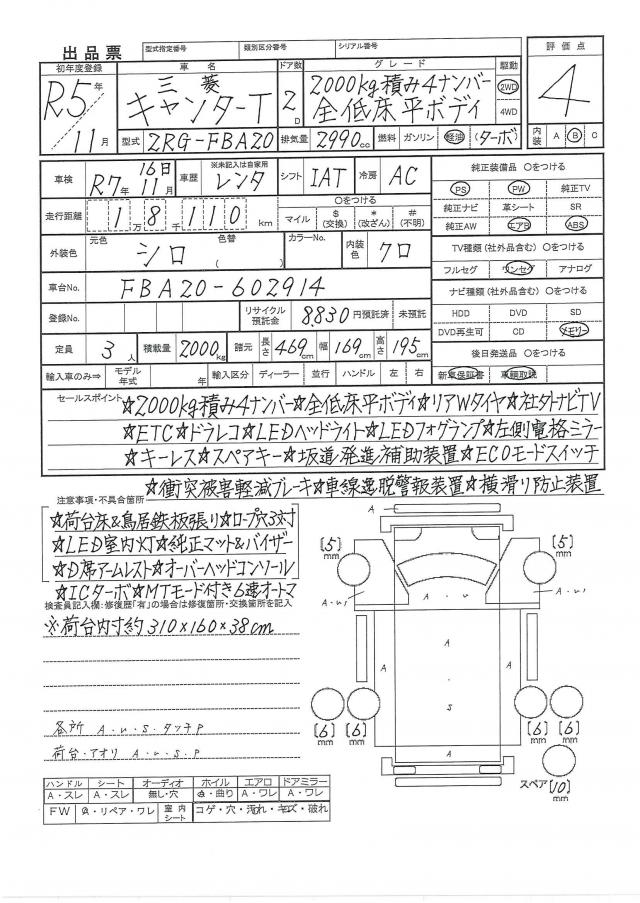 出品票 型式指定番号 類別区分番号 シリアル番号
初年度登録 車名 ドア数 グレード 駆動 評価点
R5年11月 三菱 キャンターT 2D 2000kg積み4ナンバー 全低床平ボディ 2WD 4WD 4
型式 2RG-FBA20 排気量 2990cc 燃料 ガソリン 軽油 (ターボ) 内装 A B C
車検 R7年11月16日 車歴 ※未記入は自家用 レンタ シフト IAT 冷房 AC
純正装備品 〇をつける
PS PW 純正TV
純正ナビ 革シート SR
純正AW エアB ABS
走行距離 1万8千110km 〇をつける マイル $(交換) *(改ざん) #(不明)
外装色 元色 シロ 色替 ( ) カラーNo. 内装色 クロ
TV種類(社外品含む) 〇をつける
フルセグ ワンセグ アナログ
車台No. FBA20-602914
ナビ種類(社外品含む) 〇をつける
HDD DVD SD
DVD再生可 CD メモリー
登録No. リサイクル預託金 8,830円預託済 未預託
定員 3人 積載量 2000kg 諸元 長さ 469cm 幅 169cm 高さ 195cm
後日発送品 〇をつける
新車保証書 車輌取説
輸入車のみ⇒ モデル年式 年 輸入区分 ディーラー 並行 ハンドル 左 右
セールスポイント ☆2000kg積み4ナンバー☆全低床平ボディ☆リアWタイヤ☆社外ナビTV
☆ETC☆ドラレコ☆LEDヘッドライト☆LEDフォグランプ☆左側電格ミラー
☆キーレス☆スペアキー☆坂道発進補助装置☆ECOモードスイッチ
☆衝突被害軽減ブレーキ☆車線逸脱警報装置☆横滑り防止装置
注意事項・不具合箇所
☆荷台床&鳥居鉄板張り☆ロープ穴3対
☆LED室内灯☆純正マット&バイザー
☆D席アームレスト☆オーバーヘッドコンソール
☆ICターボ☆MTモード付き6速オートマ
検査員記入欄:修復歴「有」の場合は修復箇所・交換箇所を記入
※荷台内寸約310×160×38cm
各所 A・U・S・タッチP
荷台・アオリ A・U・S・P
A
[5]mm [5]mm
A・U1 A A・U1
A A A
S
[6]mm [6] [6] [6]mm
A
スペア[10]mm
ハンドル シート オーディオ ホイル エアロ ドアミラー
A・スレ A・スレ 無し・穴 A・曲り A・ワレ A・ワレ
FW A・リペア・ワレ 室内シート コゲ・穴・汚れ・キズ・破れ